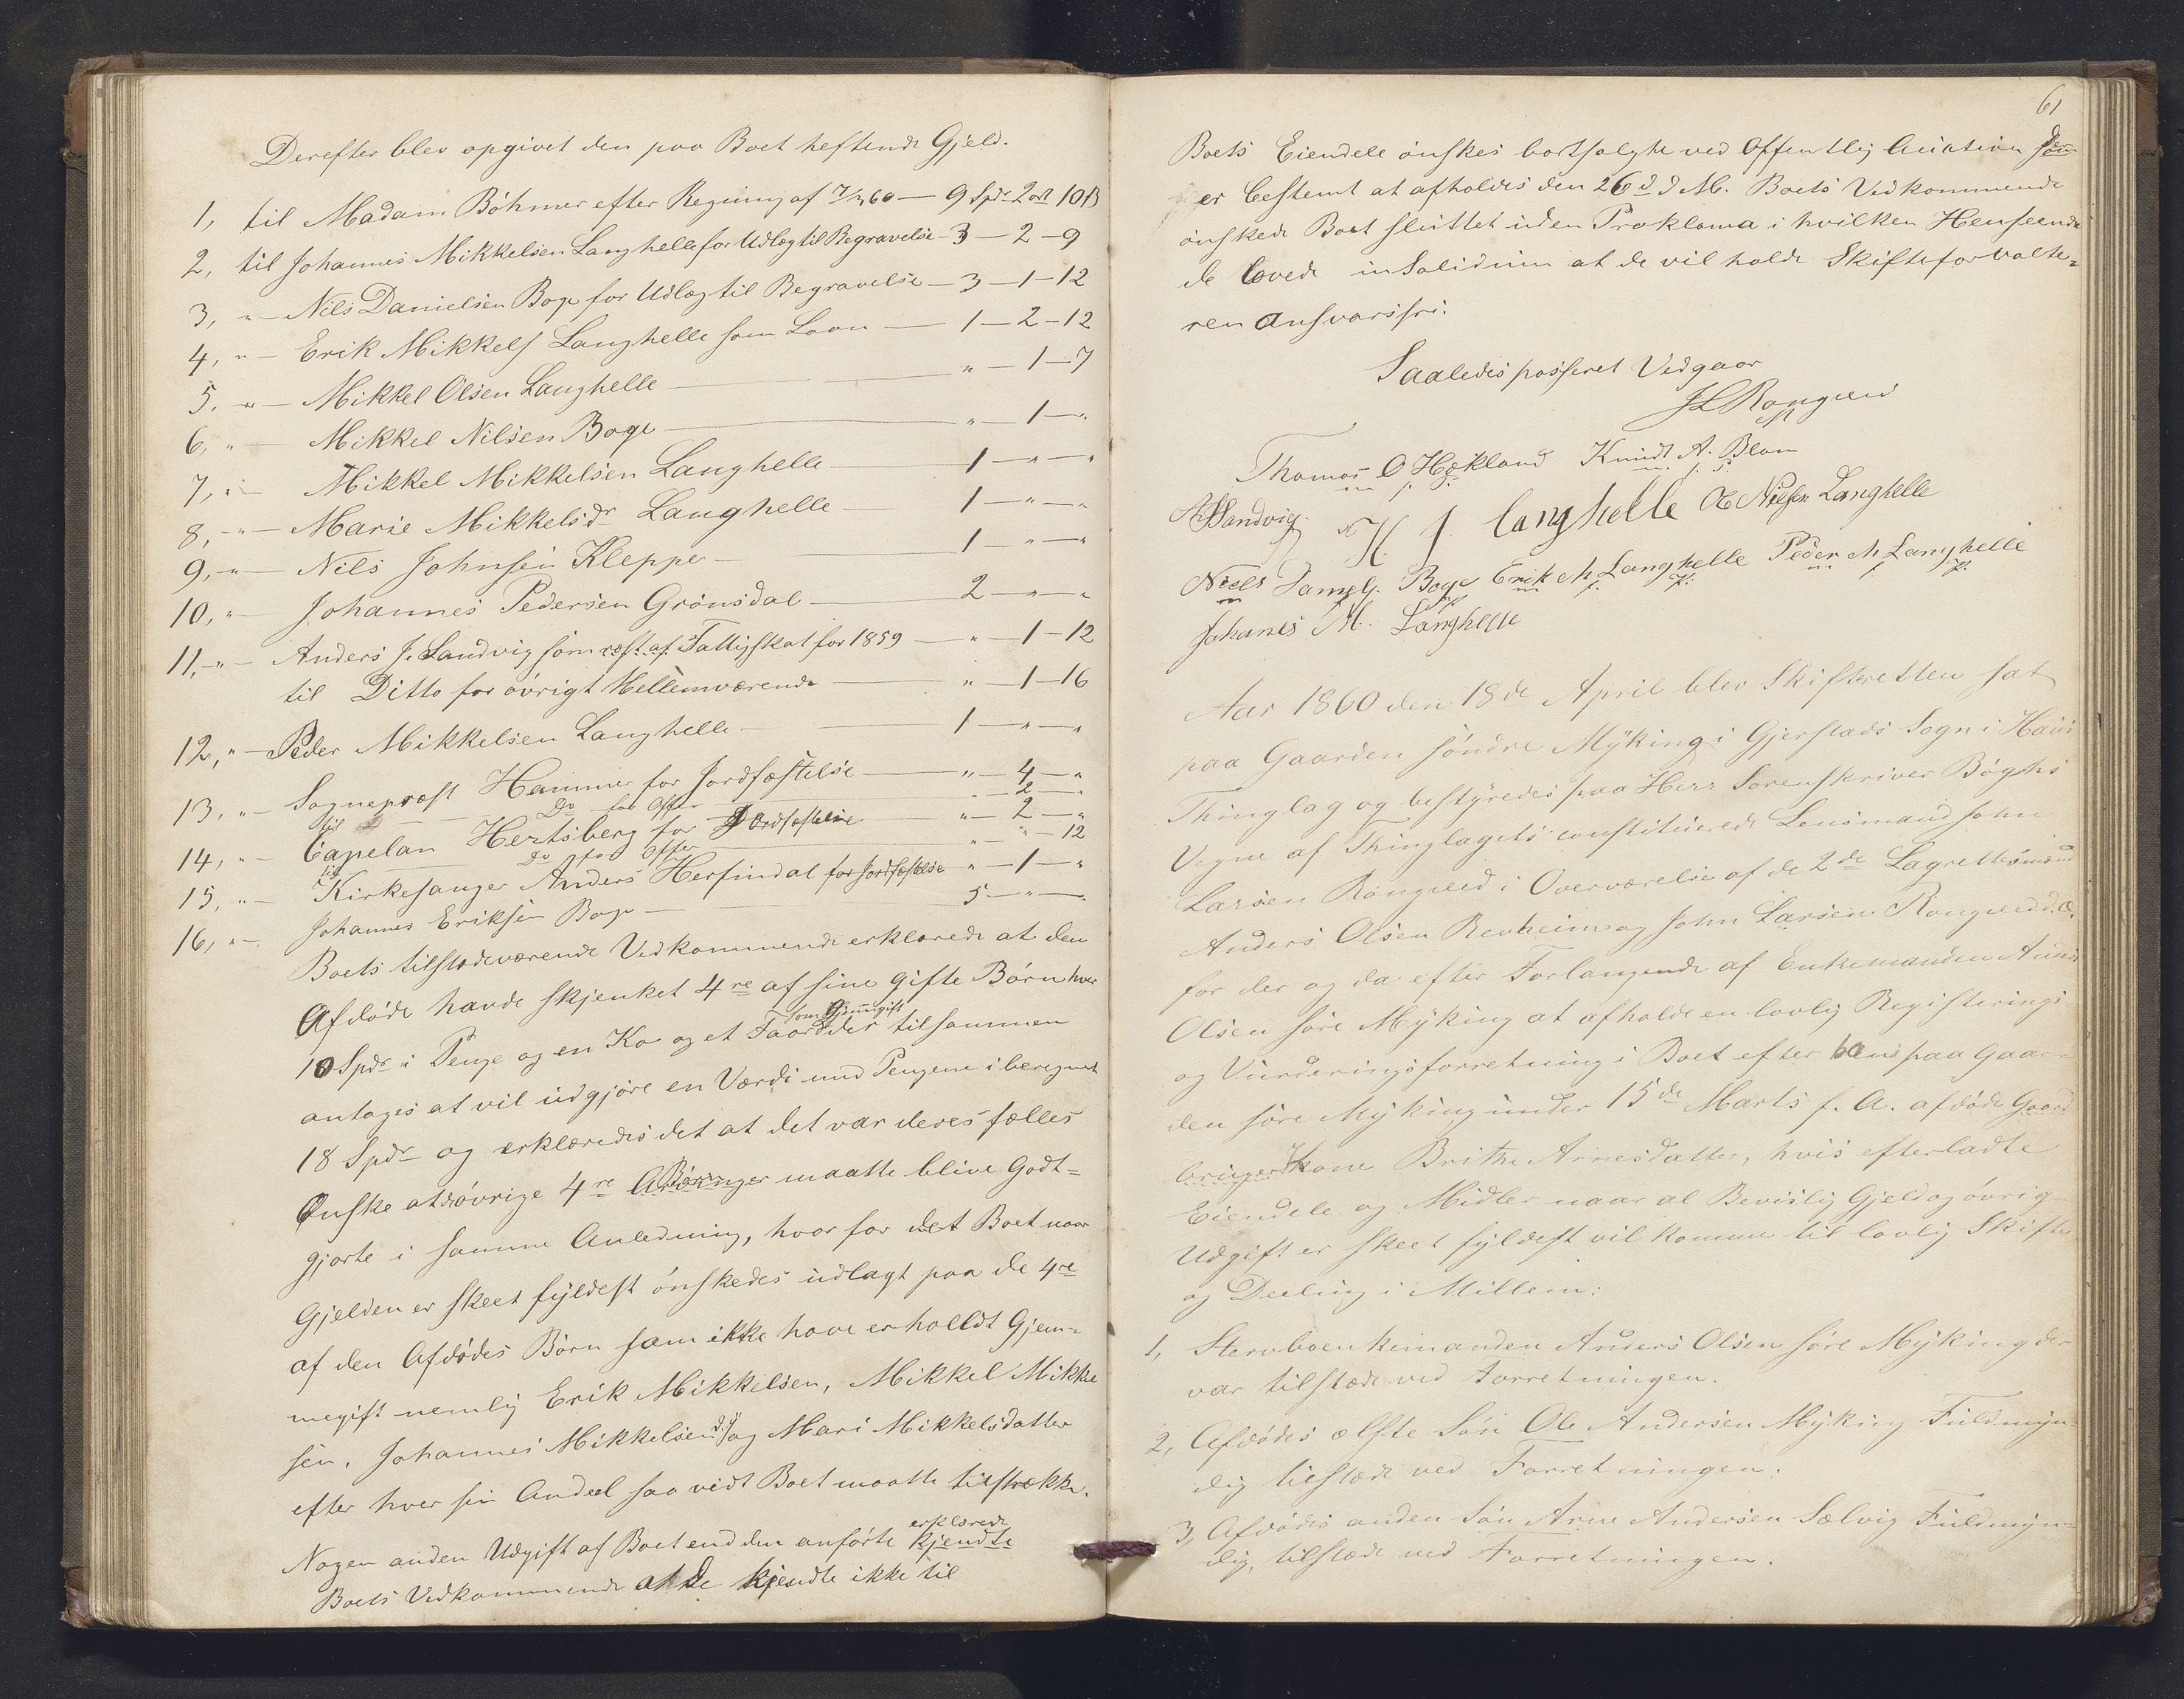 Derefter blev opgivet den paa Boet heftende Gjeld.
1, til Madam Böhmer efter Regning af 7/4 60 — 9 Spd 2 ort 10 ß
2, til Johannes Mikkelsen Langhelle for Udlæg til Begravelse — 3 — 2 — 9
3, " — Nils Danielsen Boge for Udlæg til Begravelse — 3 — 1 — 12
4, " — Erik Mikkels Langhelle som Laan — 1 — 2 — 12
5, " — Mikkel Olsen Langhelle — " — 1 — 7
6, " Mikkel Nilsen Boge — " — 1 — "
7, " — Mikkel Mikkelsen Langhelle — 1 — " — "
8, " — Marie Mikkelsdr Langhelle — 1 — " — "
9, " — Nils Johnsen Kleppe — 1 — " — "
10, " Johannes Pedersen Grönsdal — 2 — " — "
11, " — Anders J. Sandvig som rest af Fattigskat for 1859 — " — 1 — 12
til Ditto for övrigt Mellemværende — " — 1 — 16
12, " — Peder Mikkelsen Langhelle — 1 — " — "
13, " — Sogneprest Hammer for Jordfæstelse — " — 4 — "
Do for Offer — " — 2 — "
14, " — til Capelan Hertsberg for Jordfæstelse — " — 2 — "
Do for Offer — " — " — 12
15, " — til Kirkesanger Anders Herfindal for Jordfæstelse " — 1 — "
16, " — Johannes Eriksen Boge — 5 — " — "
Boets tilstedeværende Vedkommende erklærede at den
Afdöde havde skjenket 4re af sine gifte Börn hver
som Hjemmegift
10 Spdr i Penge og en Ko og et Faar der tilsammen
antages at vil udgjöre en Værdi med Pengene iberegnet
18 Spdr og erklæredes det at det var deres fælles
Önske at de övrige 4re Börn maatte blive Godt=
gjorte i samme Anledning, hvorfor det Boet naar
Gjelden er skeet fyldest önskedes udlagt paa de 4re
af den Afdödes Börn som ikke have erholdt Hjem=
megift nemlig Erik Mikkelsen, Mikkel Mikkel
sen, Johannes Mikkelsen og Mari Mikkelsdatter
efter hver sin Andeel saa vidt Boet maatte tilstrække.
erklærede
Nogen anden Udgift af Boet end den anförte kjendte
Boets Vedkommende at de kjendte ikke til
61
Boets Eiendele önskes bortsolgte ved Offentlig Auction som
er bestemt at afholdes den 26d d. M. Boets Vedkommende
önskede Boet sluttet uden Proklama i hvilken Henseende
de lovede in Solidum at de vil holde Skifteforvalte=
ren ansvarsfri.
Saaledes passeret Vedgaar
J L Rongved
Thomas O Hækland Knud A. Blom
m. f. P. m. f. P.
A J Sandvig. N H J langhelle Ole Nielsen Langhelle
Niels Daniels. Boge Erik M Langhelle Peder M Langhelle
m. f. P. m. f. P.
Johanes M. Langhelle
Aar 1860 den 18de April blev Skifteretten sat
paa Gaarden söndre Myking i Gjerstads Sogn i Haus
Thinglag og bestyredes paa Herr Sorenskriver Böghs
Vegne af Thinglagets constituerede Lensmand John
Larsen Rongved i Overværelse af de 2de Lagrettesmænd
Anders Olsen Revheim og John Larsen Rongved d. æ.
for der og da efter Forlangende af Enkemanden Anders
Olsen söre Myking at afholde en lovlig Registerings
og Vurderingsforretning i Boet efter hans paa Gaar=
den söre Myking under 15de Marts f. A. afdöde Gaard
bruger Kone Brithe Arnesdatter, hvis efterladte
Eiendele og Midler naar al Bevislig Gjeld og övrig
Udgift er skeet fyldest vil komme til lovlig Skifte
og Deeling i Millem:
1, Stervboenkemanden Anders Olsen söre Myking der
var tilstede ved Forretningen.
2, Afdödes ælste Sön Ole Andersen Myking Fuldmyn=
dig tilstede ved Forretningen.
3, Afdödes anden Sön Arne Andersen Sælvig Fuldmyn=
dig, tilstede ved Forretningen.